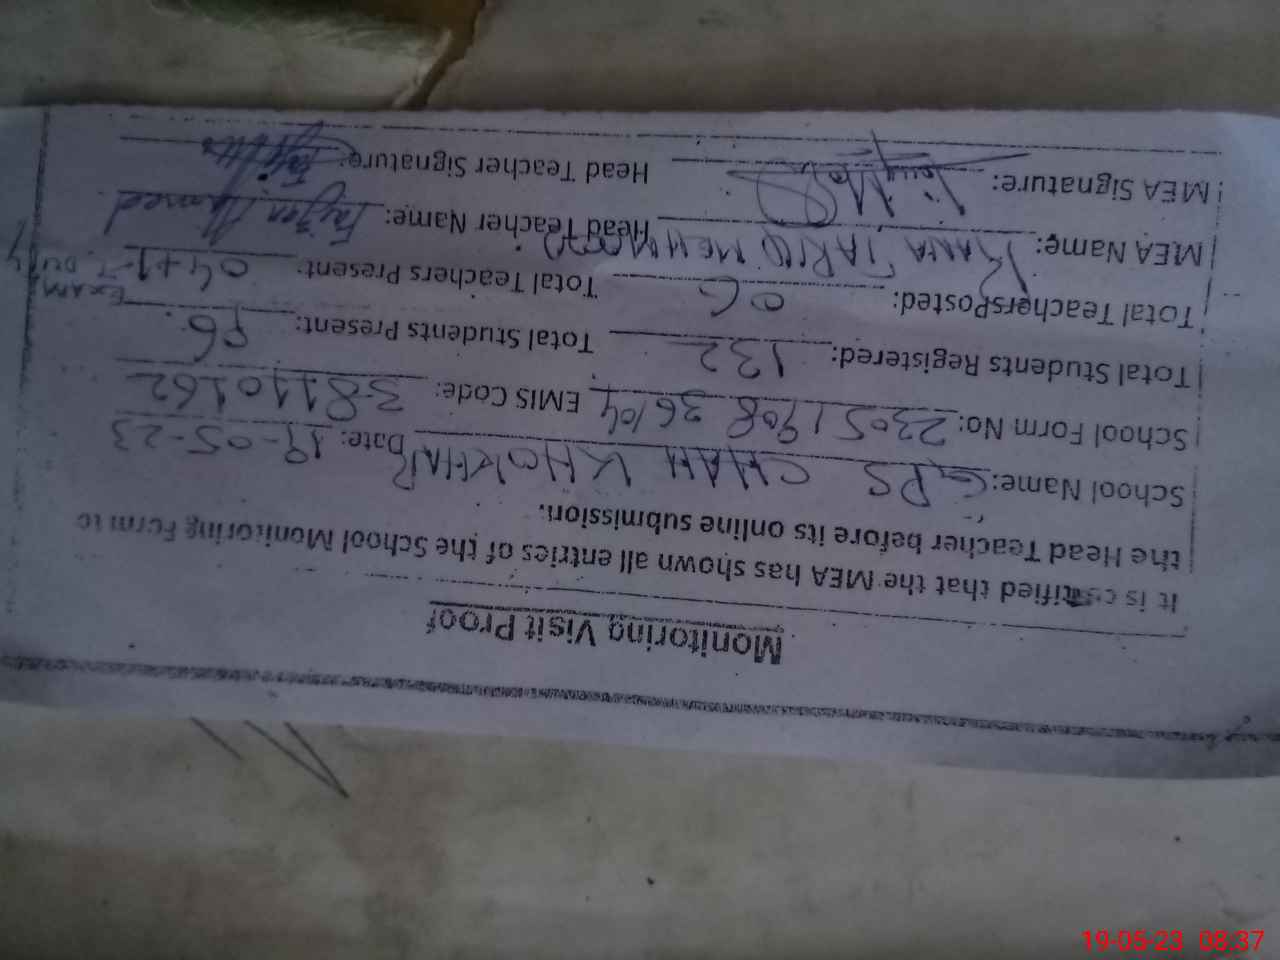 Monitoring Visit Proof
It is certified that the MEA has shown all entries of the School Monitoring Form to
the Head Teacher before its online submission.
School Name: GPS CHAH KHOKHAR Date: 19-05-23
School Form No: 2305190836104 EMIS Code: 38110162
Total Students Registered: 132 Total Students Present: 96
Total TeachersPosted: 06 Total Teachers Present: 04+1 EXAM DUTY
MEA Name: RANA TARIQ MEHMOOD Head Teacher Name: Faizan Ahmed
MEA Signature: Head Teacher Signature:
19-05-23 08:37